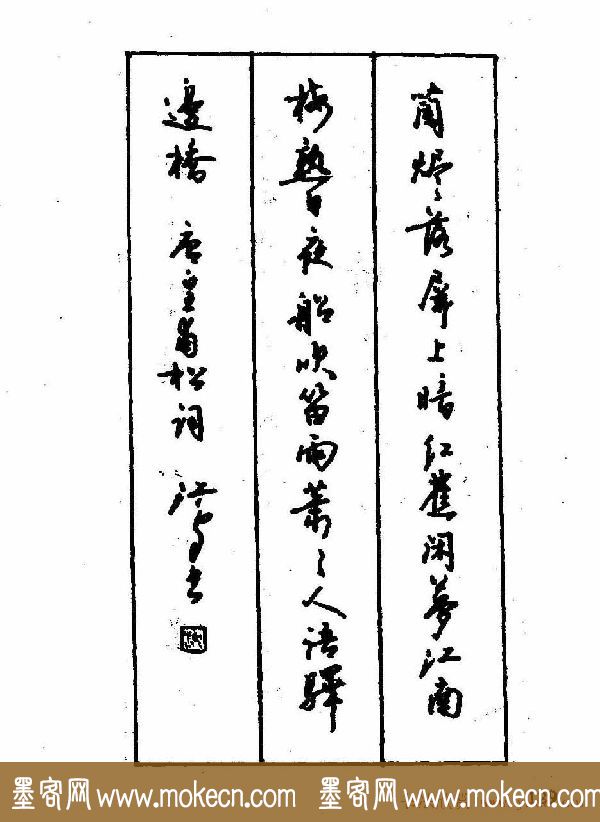 蘭烬落屏上暗红蕉闲夢江南
梅熟日夜船吹笛雨萧々人语驛
邊橋 唐皇甫松词
墨客网 www.mokecn.com 墨客网 www.mokecn.com